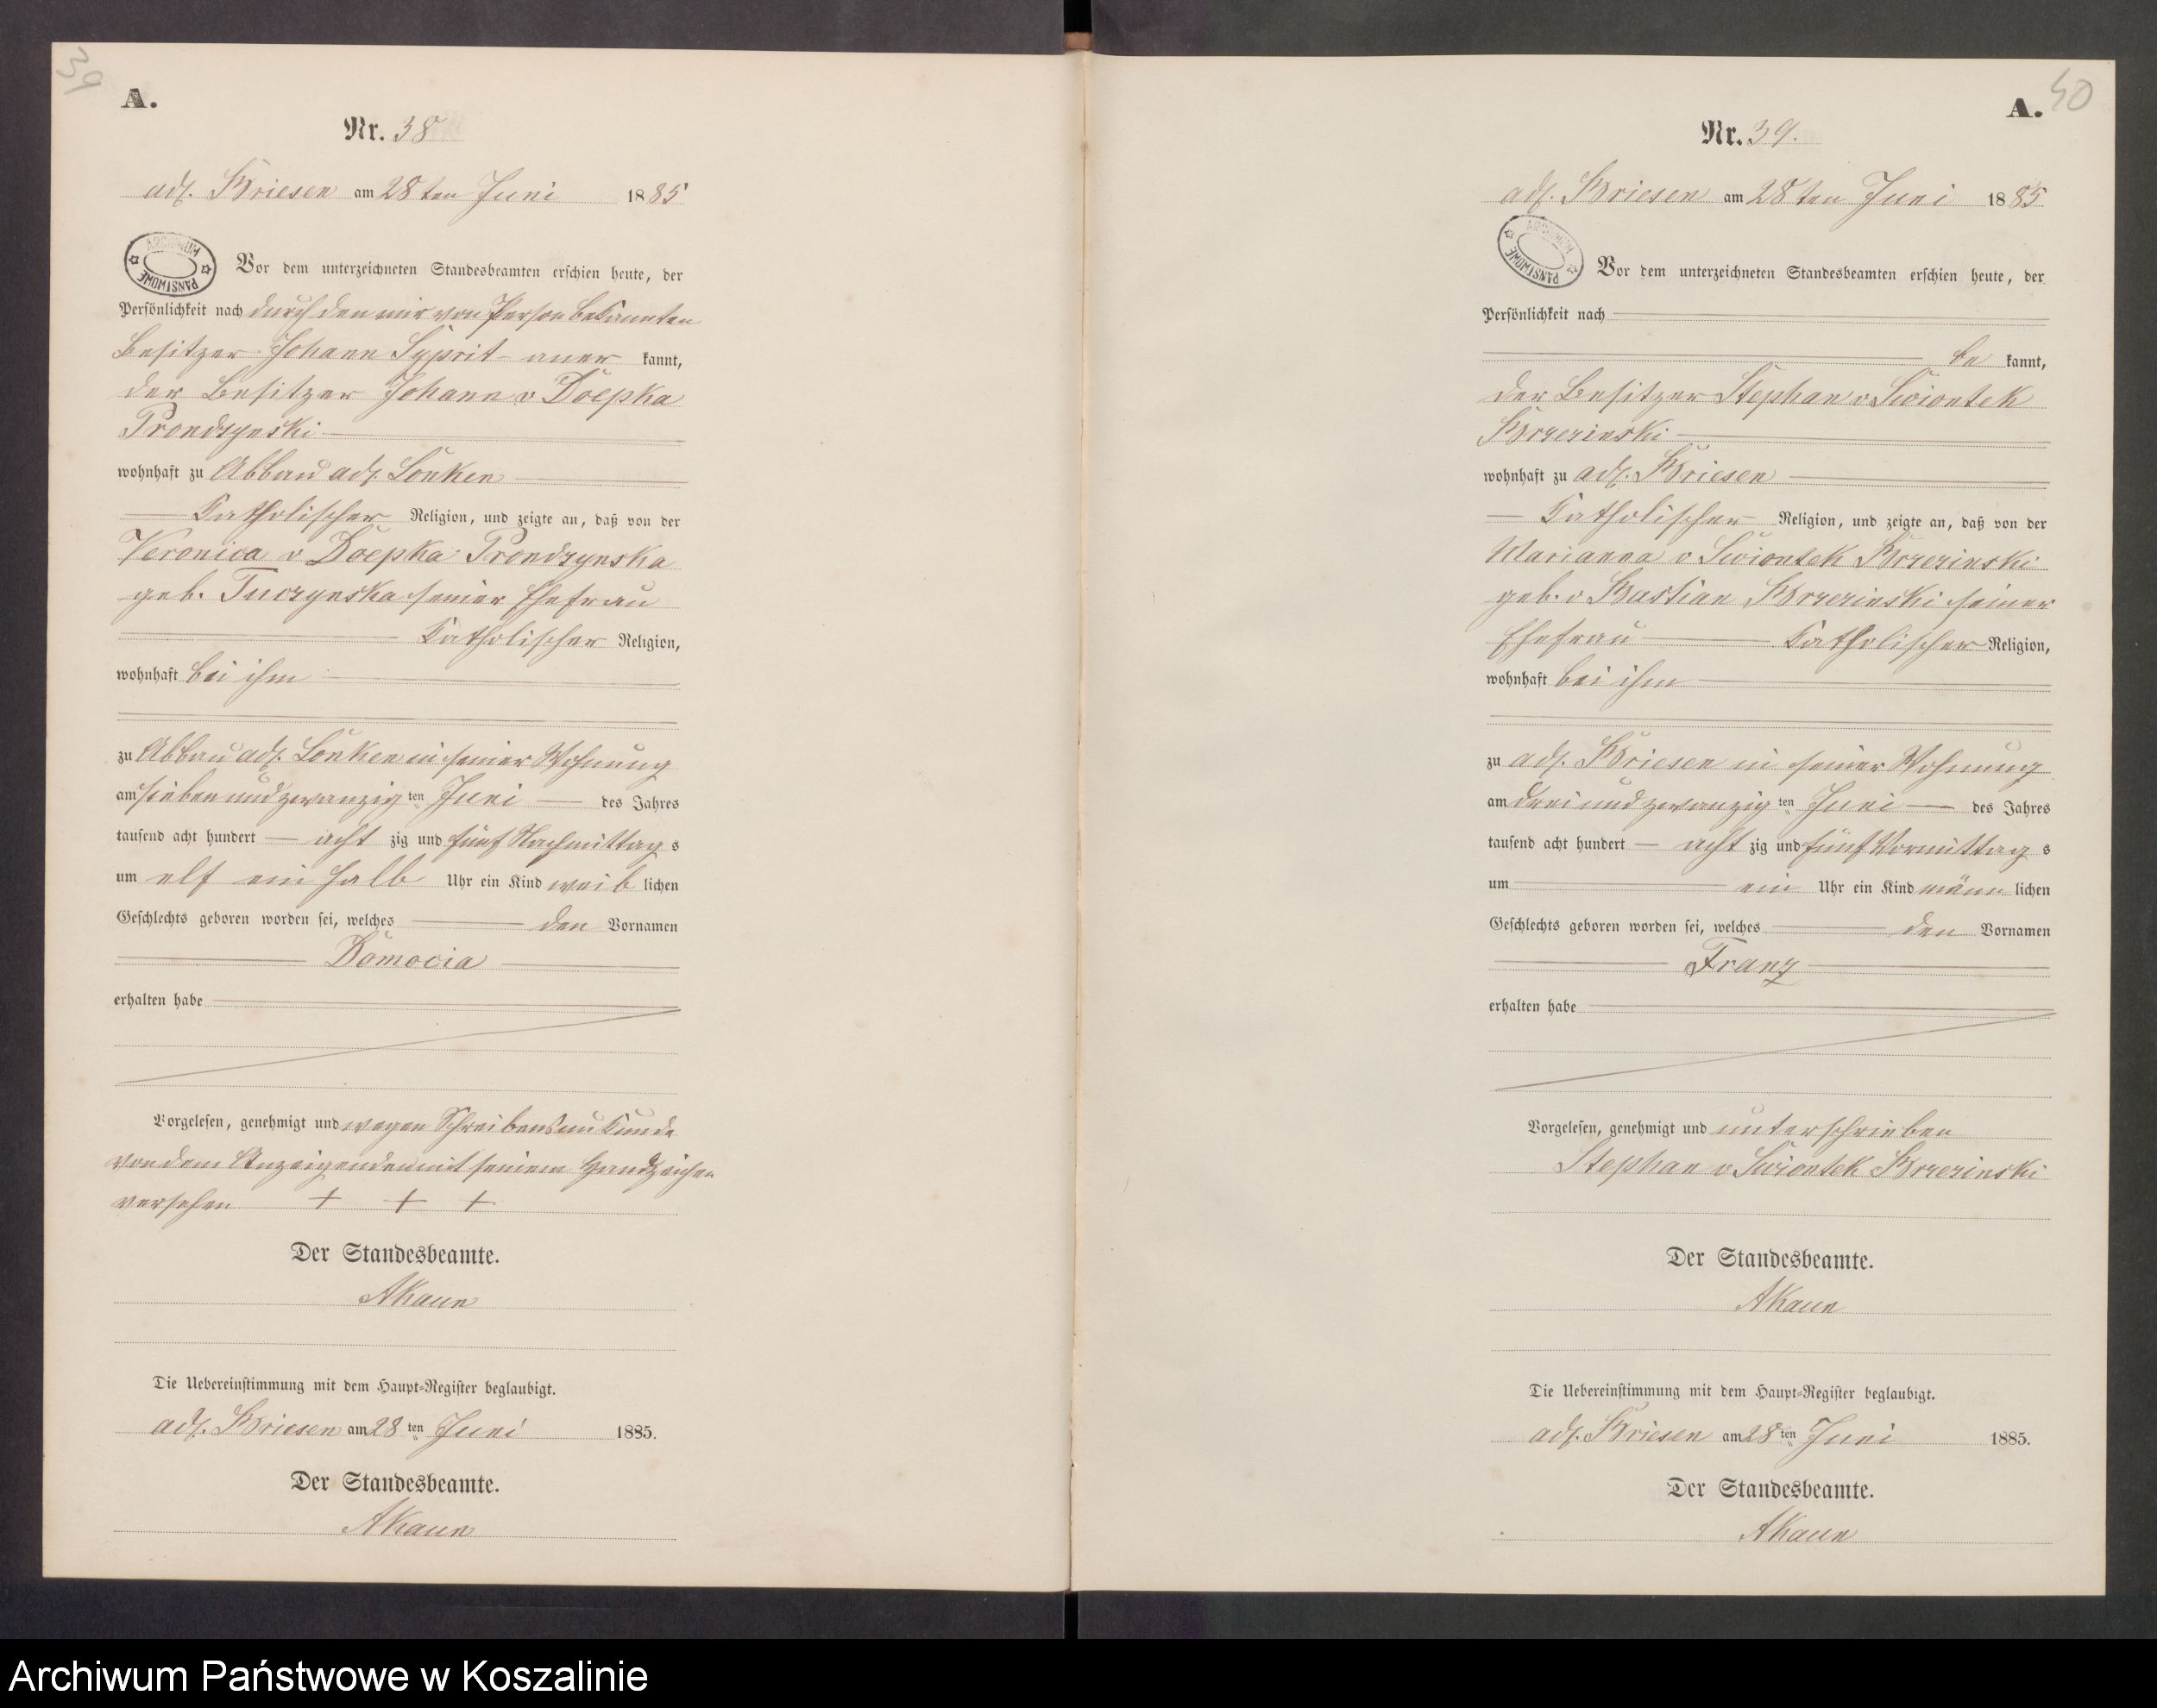 39
A.
Nr. 38
adl. Briesen am 28ten Juni 1885
ARCHIWUM PAŃSTWOWE
Vor dem unterzeichneten Standesbeamten erschien heute, der
Persönlichkeit nach durch den mir von Person bekannten
Besitzer Johann Syprit aner kannt,
der Besitzer Johann v Doepka
Prondzynski
wohnhaft zu Abbau adl. Lonken
Katholischer Religion, und zeigte an, daß von der
Veronica v Doepka Prondzynska
geb. Tuczynska seiner Ehefrau
Katholischer Religion,
wohnhaft bei ihm
zu Abbau adl. Lonken in seiner Wohnung
am sieben und zwanzig ten Juni des Jahres
tausend acht hundert acht zig und fünf Nachmittag s
um elf ein halb Uhr ein Kind weib lichen
Geschlechts geboren worden sei, welches den Vornamen
Domocia
erhalten habe
Vorgelesen, genehmigt und wegen Schreibensunkunde
von dem Anzeigenden mit seinem Handzeichen
versehen + + +
Der Standesbeamte.
AKaun
Die Uebereinstimmung mit dem Haupt-Register beglaubigt.
adl. Briesen am 28 ten Juni 1885.
Der Standesbeamte.
AKaun
40
A.
Nr. 39.
adl. Briesen am 28ten Juni 1885
ARCHIWUM PAŃSTWOWE
Vor dem unterzeichneten Standesbeamten erschien heute, der
Persönlichkeit nach
be kannt,
der Besitzer Stephan v Swiontek
Brzezinski
wohnhaft zu adl. Briesen
Katholischer Religion, und zeigte an, daß von der
Marianna v Swiontek Brzezinski
geb. v Bastian Brzezinski seiner
Ehefrau Katholischer Religion,
wohnhaft bei ihm
zu adl. Briesen in seiner Wohnung
am drei und zwanzig ten Juni des Jahres
tausend acht hundert acht zig und fünf Vormittag s
um ein Uhr ein Kind männ lichen
Geschlechts geboren worden sei, welches den Vornamen
Franz
erhalten habe
Vorgelesen, genehmigt und unterschrieben
Stephan v Swiontek Brzezinski
Der Standesbeamte.
AKaun
Die Uebereinstimmung mit dem Haupt-Register beglaubigt.
adl. Briesen am 28 ten Juni 1885.
Der Standesbeamte.
AKaun
Archiwum Państwowe w Koszalinie